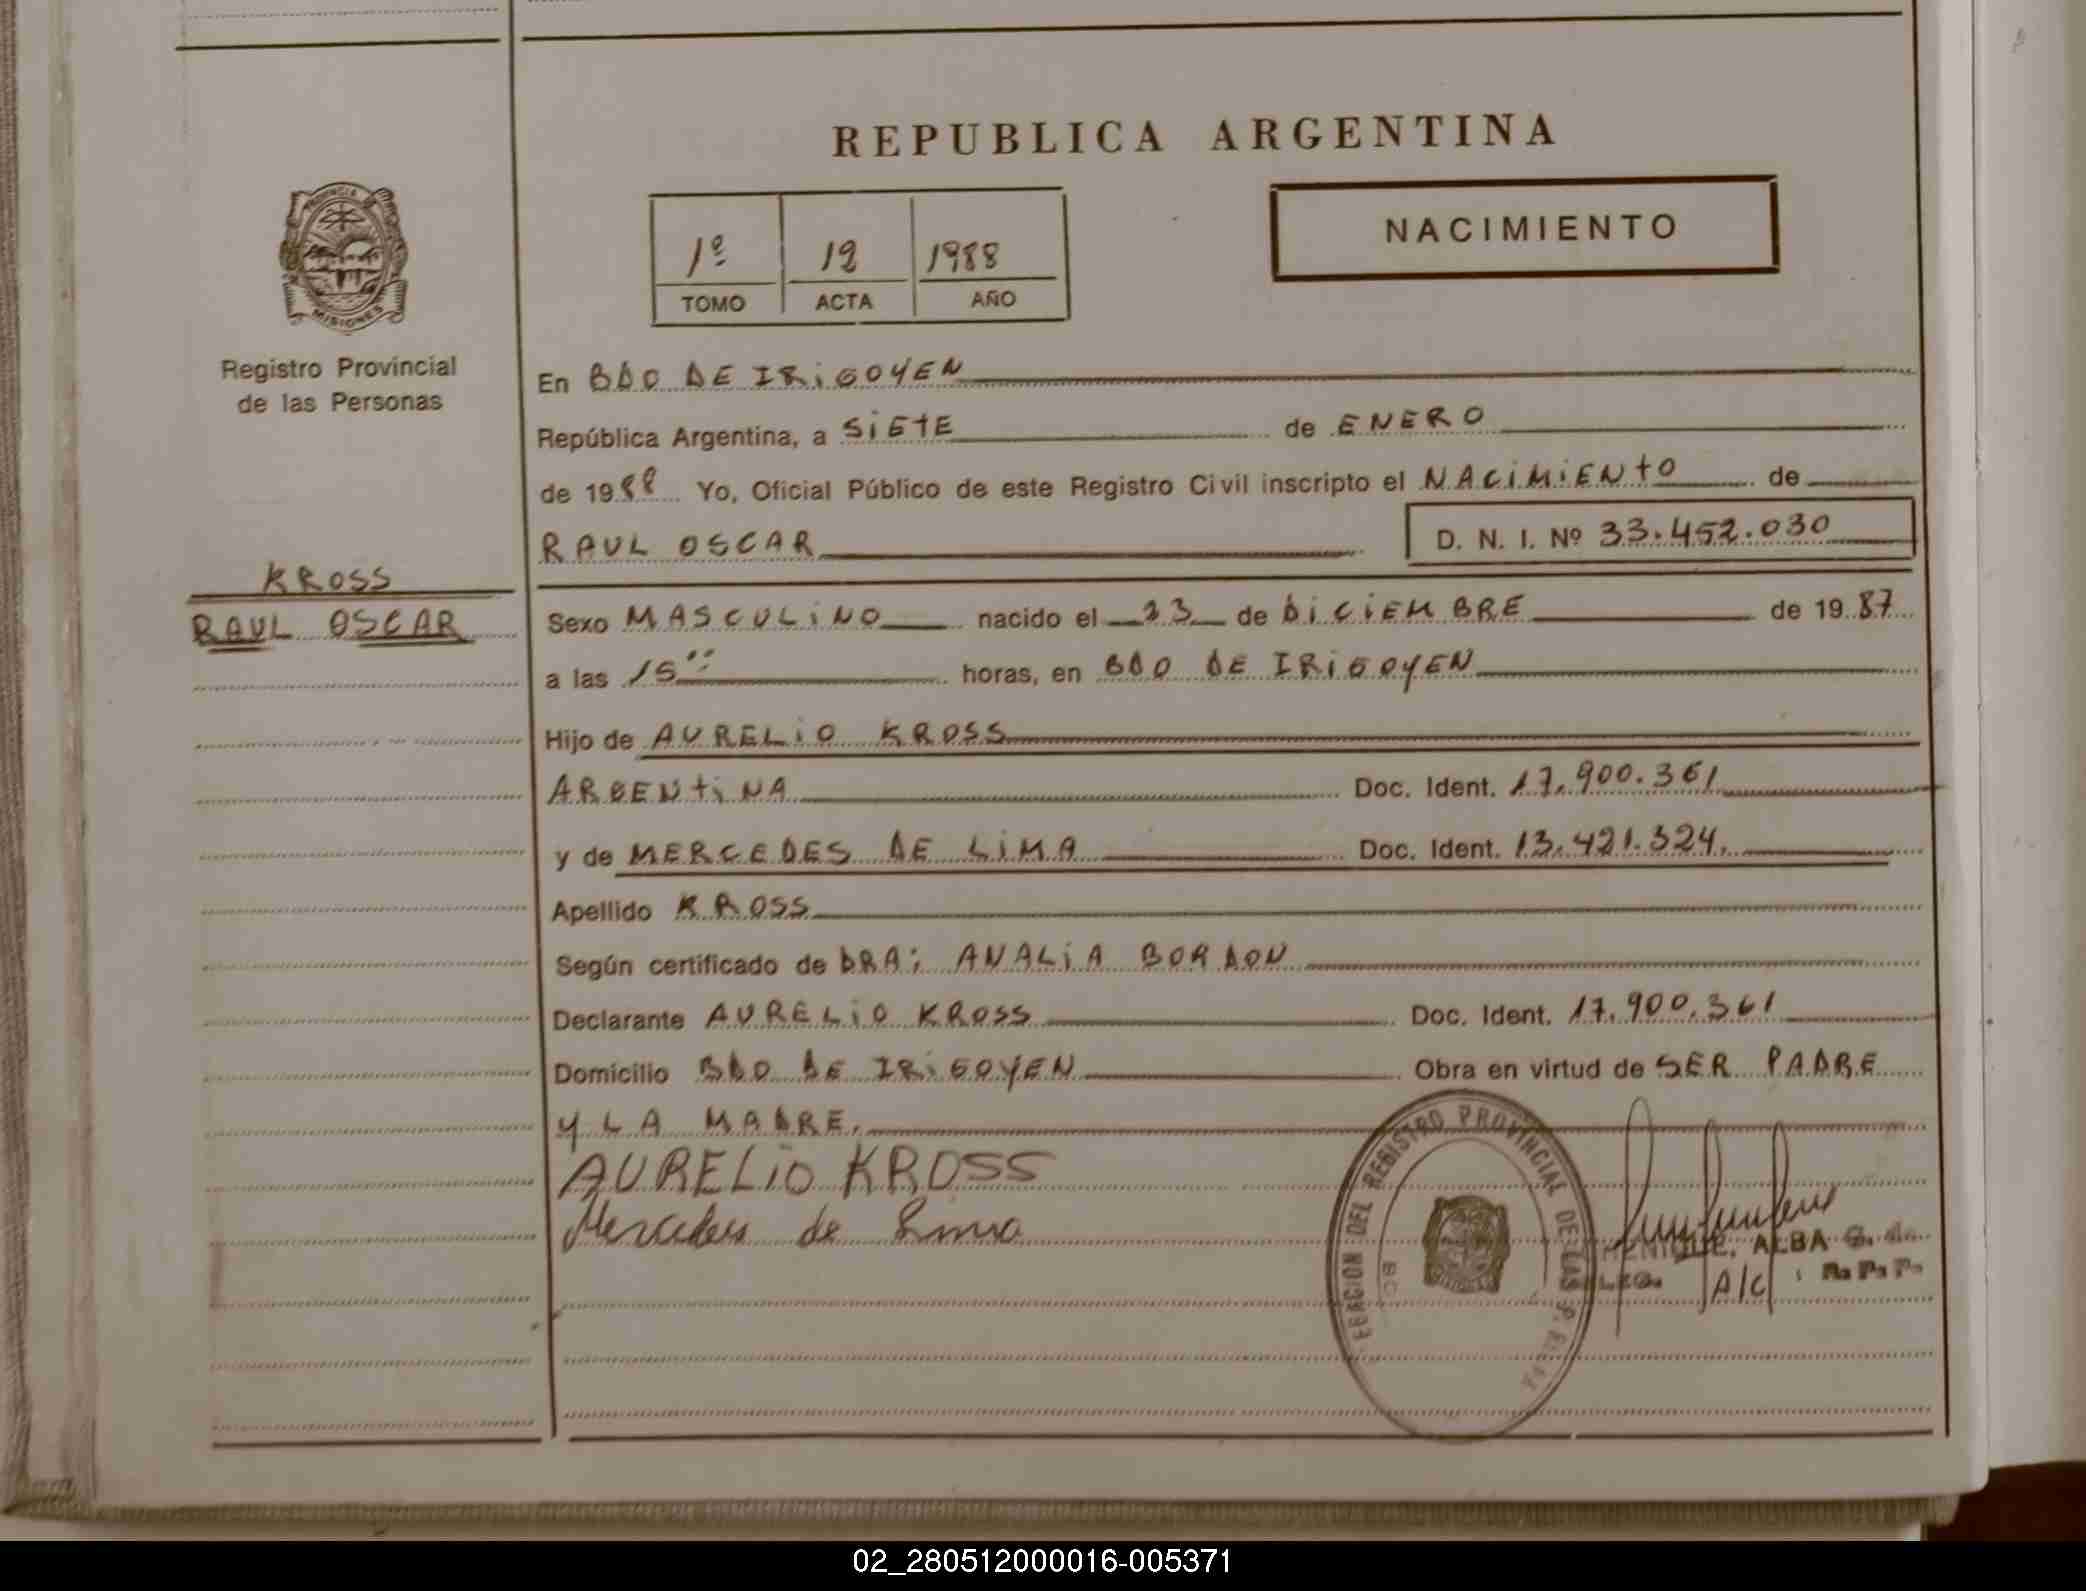 REPUBLICA ARGENTINA
NACIMIENTO
1º 12 1988
TOMO ACTA AÑO
PROVINCIA DE
MISIONES
Registro Provincial
de las Personas
KROSS
RAUL OSCAR
En BDO DE IRIGOYEN
República Argentina, a SIETE de ENERO
de 1988 Yo, Oficial Público de este Registro Civil inscripto el NACIMIENTO de
RAUL OSCAR D. N. I. Nº 33.452.030
Sexo MASCULINO nacido el 23 de DICIEMBRE de 1987
a las 15" horas, en BDO DE IRIGOYEN
Hijo de AURELIO KROSS
ARGENTINA Doc. Ident. 17.900.361
y de MERCEDES DE LIMA Doc. Ident. 13.421.324.
Apellido KROSS
Según certificado de DRA: ANALIA BORDON
Declarante AURELIO KROSS Doc. Ident. 17.900.361
Domicilio BDO DE IRIGOYEN Obra en virtud de SER PADRE
Y LA MADRE.
AURELIO KROSS
Mercedes de Lima
REGISTRO PROVINCIAL DE LAS P.
ALBA
A/C R. P. P.
02_280512000016-005371